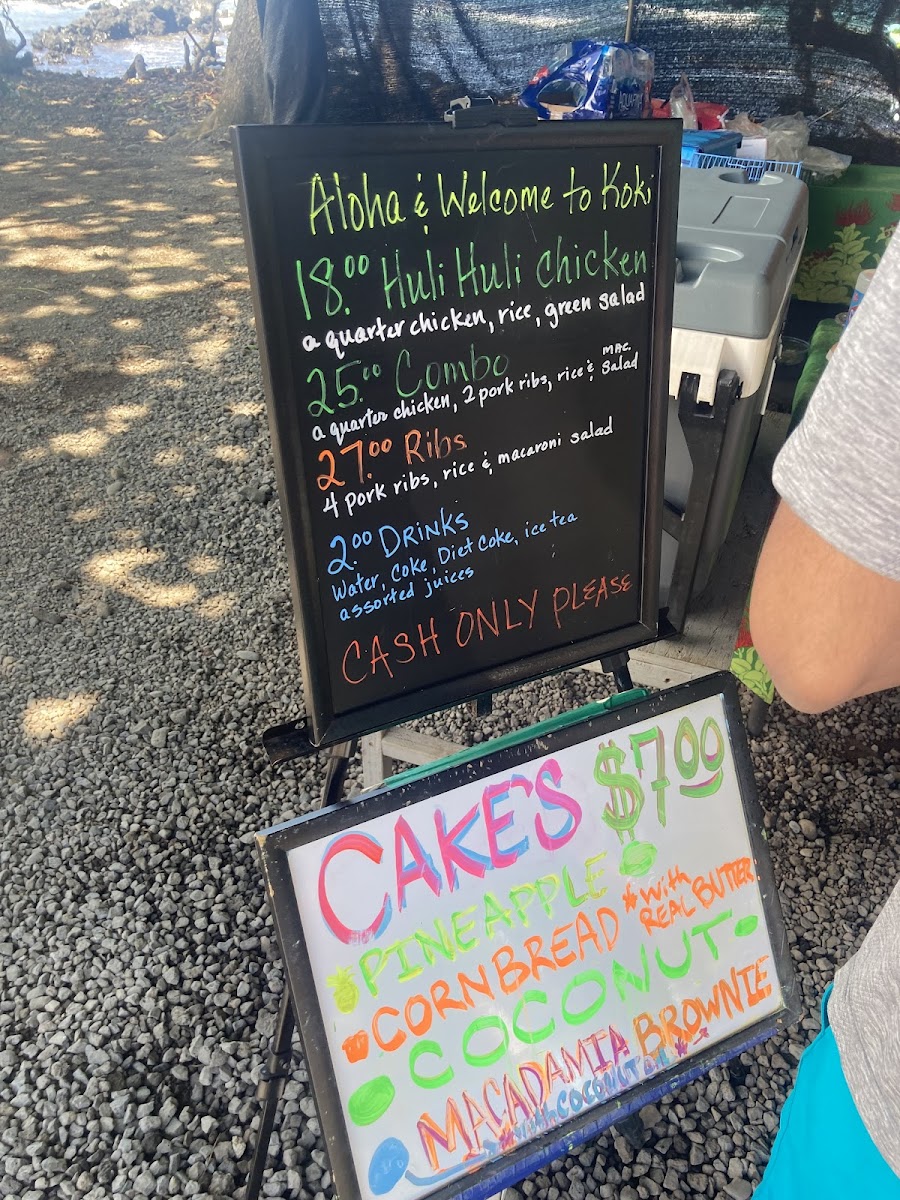 Aloha & Welcome to Koki
18.00 Huli Huli Chicken
a quarter chicken, rice, green salad
25.00 Combo
a quarter chicken, 2 pork ribs, rice & mac. Salad
27.00 Ribs
4 pork ribs, rice & macaroni salad
2.00 DRINKS
Water, Coke, Diet Coke, ice tea
assorted juices
CASH ONLY PLEASE
CAKE'S $7.00
PINEAPPLE
CORNBREAD *With REAL BUTTER.
COCONUT
MACADAMIA BROWNIE
*with COCONUT